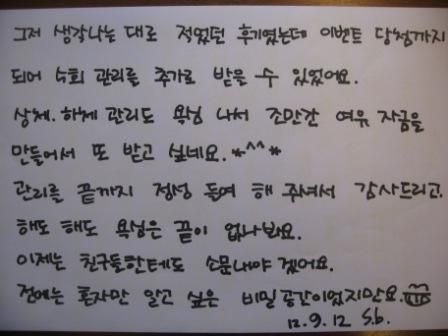 그저 생각나는 대로 적었던 후기였는데 이벤트 당첨까지
되어 수회 관리를 추가로 받을 수 있었어요.
상체. 하체 관리도 욕심 나서 조만간 여유 자금을
만들어서 또 받고 싶네요. *^^*
관리를 끝까지 정성 들여 해 주셔서 감사드리고.
해도 해도 욕심은 끝이 없나봐요.
이제는 친구들한테도 소문내야 겠어요.
전에는 혼자만 알고 싶은 비밀공간이었지만요.
12. 9. 12 S.b.